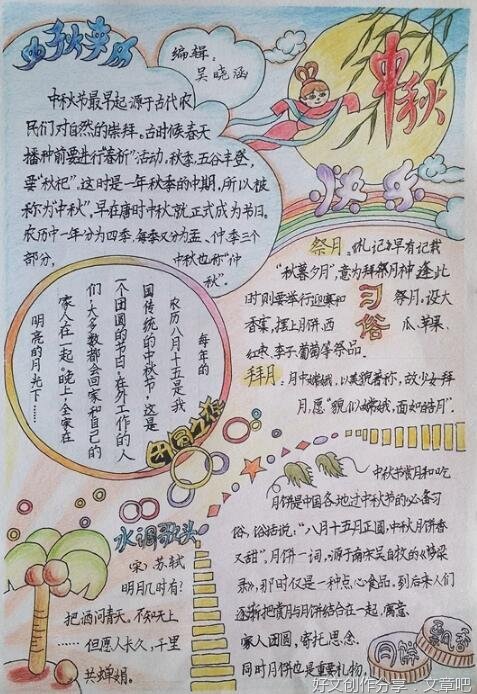 中秋来历
编辑：
吴晓涵
中秋
快乐
中秋节最早起源于古代农
民们对自然的崇拜。古时候春天
播种前要进行“春祈”活动，秋季，五谷丰登，
要“秋祀”，这时是一年秋季的中期，所以被
称为“中秋”，早在唐时中秋就正式成为节日。
农历中一年分为四季，每季又分为孟、仲、季三个
部分，
中秋也称“仲
秋”。
习俗
祭月：《礼记》早有记载
“秋暮夕月”，意为拜祭月神，逢此
时则要举行迎寒和祭月。设大
香案，摆上月饼、西瓜、苹果、
红枣、李子、葡萄等祭品。
拜月：月中嫦娥，以美貌著称，故少女拜
月，愿“貌似嫦娥，面如皓月”。
每年的
农历八月十五是我
国传统的中秋节，这是
一个团圆的节日，在外工作的人
们，大多数都会回家和自己的
家人在一起。晚上，全家在
明亮的月光下……
团圆之夜
水调歌头
宋：苏轼
明月几时有？
把酒问青天。不知天上
……但愿人长久，千里
共婵娟。
中秋节赏月和吃
月饼是中国各地过中秋节的必备习
俗，俗话说：“八月十五月正圆，中秋月饼香
又甜”。月饼一词，源于南宋吴自牧的《梦梁
录》，那时仅是一种点心食品。到后来人们
逐渐把赏月与月饼结合在一起，寓意
家人团圆，寄托思念。
同时月饼也是重要礼物。
月饼飘香
好文创作分享—文章吧